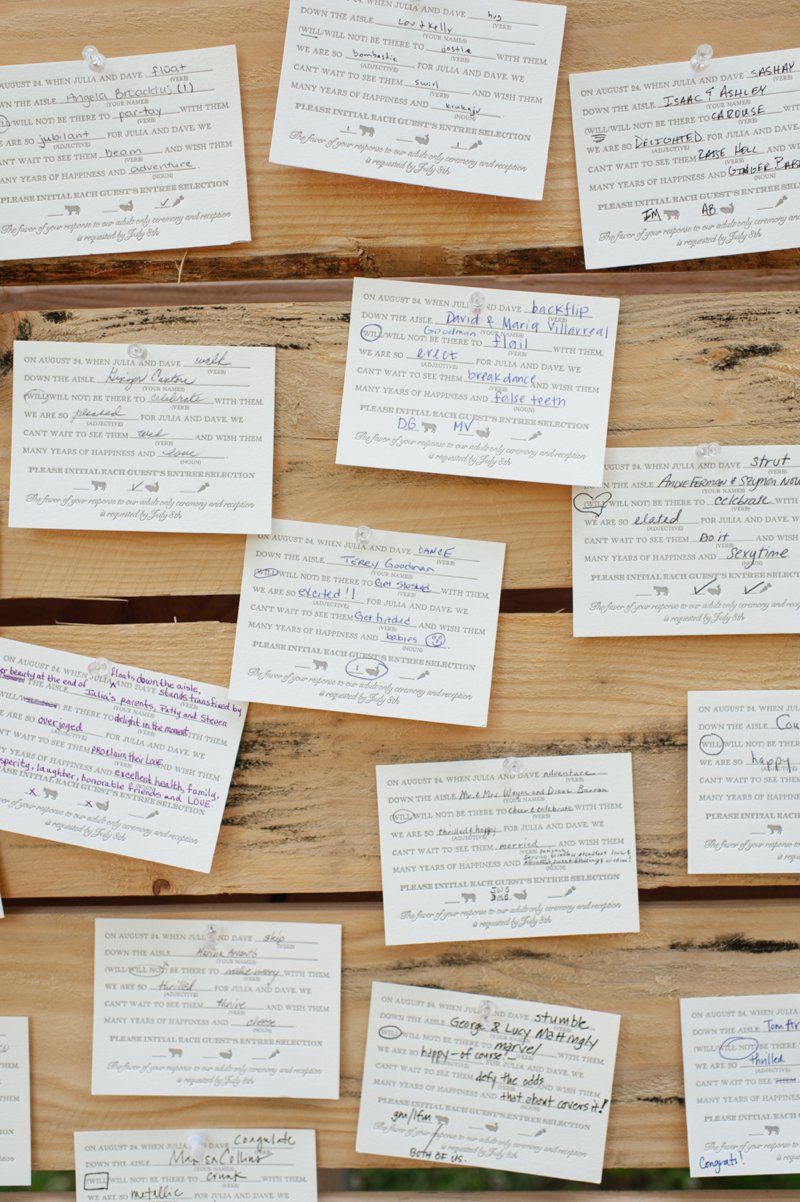 AUGUST 24, WHEN JULIA AND DAVE float
(VERB)
DOWN THE AISLE Angela Brocklus (1)
(YOUR NAMES)
WILL NOT) BE THERE TO par-tay WITH THEM.
(VERB)
WE ARE SO jubilant FOR JULIA AND DAVE. WE
(ADJECTIVE)
CAN'T WAIT TO SEE THEM beam AND WISH THEM
(VERB)
MANY YEARS OF HAPPINESS AND adventure.
(NOUN)
PLEASE INITIAL EACH GUEST'S ENTREE SELECTION
✓
The favor of your response to our adult only ceremony and reception
is requested by July 8th
WHEN JULIA AND DAVE hug
(VERB)
DOWN THE AISLE Lou & Kelly
(YOUR NAMES)
(WILL/WILL NOT) BE THERE TO jostle WITH THEM.
(VERB)
WE ARE SO bombastic FOR JULIA AND DAVE. WE
(ADJECTIVE)
CAN'T WAIT TO SEE THEM swirl AND WISH THEM
(VERB)
MANY YEARS OF HAPPINESS AND kinkaju.
(NOUN)
PLEASE INITIAL EACH GUEST'S ENTREE SELECTION
1 1
The favor of your response to our adult only ceremony and reception
is requested by July 8th
ON AUGUST 24, WHEN JULIA AND DAVE SASHAY
DOWN THE AISLE ISAAC & ASHLEY
(YOUR NAMES)
(WILL/WILL NOT) BE THERE TO CAROUSE
(VERB)
WE ARE SO DELIGHTED FOR JULIA AND DAVE
(ADJECTIVE)
CAN'T WAIT TO SEE THEM RAISE HELL AND WISH
(VERB)
MANY YEARS OF HAPPINESS AND GINGER BAB
(NOUN)
PLEASE INITIAL EACH GUEST'S ENTREE SELECTION
IM AB
The favor of your response to our adult only ceremony and
is requested by July 8th
ON AUGUST 24, WHEN JULIA AND DAVE backflip
(VERB)
DOWN THE AISLE David & Maria Villarreal
Goodman (YOUR NAMES)
(WILL/WILL NOT) BE THERE TO flail WITH THEM.
(VERB)
WE ARE SO erect FOR JULIA AND DAVE. WE
(ADJECTIVE)
CAN'T WAIT TO SEE THEM breakdance AND WISH THEM
(VERB)
MANY YEARS OF HAPPINESS AND false teeth
(NOUN)
PLEASE INITIAL EACH GUEST'S ENTREE SELECTION
DG MV
The favor of your response to our adult only ceremony and reception
is requested by July 8th
ON AUGUST 24, WHEN JULIA AND DAVE walk
(VERB)
DOWN THE AISLE
(YOUR NAMES)
(WILL/WILL NOT) BE THERE TO celebrate WITH THEM.
(VERB)
WE ARE SO pleased FOR JULIA AND DAVE. WE
(ADJECTIVE)
CAN'T WAIT TO SEE THEM wed AND WISH THEM
(VERB)
MANY YEARS OF HAPPINESS AND love
(NOUN)
PLEASE INITIAL EACH GUEST'S ENTREE SELECTION
✓
The favor of your response to our adult only ceremony and reception
is requested by July 8th
ON AUGUST 24, WHEN JULIA AND DAVE strut
(VERB)
DOWN THE AISLE ANDIE FERMAN & SZYMON NOW
(YOUR NAMES)
(WILL/WILL NOT) BE THERE TO celebrate
(VERB)
WE ARE SO elated FOR JULIA AND DAVE
(ADJECTIVE)
CAN'T WAIT TO SEE THEM Do it AND WISH
(VERB)
MANY YEARS OF HAPPINESS AND Sexytime
(NOUN)
PLEASE INITIAL EACH GUEST'S ENTREE SELECTION
✓ ✓
The favor of your response to our adult only ceremony and
is requested by July 8th
ON AUGUST 24, WHEN JULIA AND DAVE DANCE
(VERB)
DOWN THE AISLE TERRY Goodman
(YOUR NAMES)
(WILL/WILL NOT) BE THERE TO Get Sloshed WITH THEM.
(VERB)
WE ARE SO excited!! FOR JULIA AND DAVE. WE
(ADJECTIVE)
CAN'T WAIT TO SEE THEM Get hitched AND WISH THEM
(VERB)
MANY YEARS OF HAPPINESS AND babies
(NOUN)
PLEASE INITIAL EACH GUEST'S ENTREE SELECTION
1
The favor of your response to our adult only ceremony and reception
is requested by July 8th
AUGUST 24, WHEN JULIA AND DAVE floats down the aisle,
her beauty at the end of stands transfixed by
THE AISLE Julia's parents, Patty and Steven
(YOUR NAMES)
BE THERE TO delight in the moment
WE ARE SO overjoyed FOR JULIA AND DAVE. WE
(ADJECTIVE)
CAN'T WAIT TO SEE THEM proclaim their LOVE AND WISH THEM
MANY YEARS OF HAPPINESS AND excellent health, family,
prosperity, laughter, honorable friends and LOVE.
X X
The favor of your response to our adult only ceremony and reception
is requested by July 8th
ON AUGUST 24,
DOWN THE AISLE Cou
(WILL/WILL NOT) BE THERE
WE ARE SO happy
(ADJECTIVE)
CAN'T WAIT TO SEE THEM
MANY YEARS OF HAPPINESS
PLEASE INITIAL EACH
The favor of your response
is
ON AUGUST 24, WHEN JULIA AND DAVE adventure
(VERB)
DOWN THE AISLE Mr & Mrs Wayne and Diane
(YOUR NAMES)
(WILL/WILL NOT) BE THERE TO cheer & celebrate WITH THEM.
(VERB)
WE ARE SO thrilled & happy FOR JULIA AND DAVE. WE
(ADJECTIVE)
CAN'T WAIT TO SEE THEM married AND WISH THEM
(VERB)
MANY YEARS OF HAPPINESS AND
(NOUN)
PLEASE INITIAL EACH GUEST'S ENTREE SELECTION
The favor of your response to our adult only ceremony and reception
is requested by July 8th
ON AUGUST 24, WHEN JULIA AND DAVE skip
(VERB)
DOWN THE AISLE
(YOUR NAMES)
(WILL/WILL NOT) BE THERE TO make merry WITH THEM.
(VERB)
WE ARE SO thrilled FOR JULIA AND DAVE. WE
(ADJECTIVE)
CAN'T WAIT TO SEE THEM thrive AND WISH THEM
(VERB)
MANY YEARS OF HAPPINESS AND cheese
(NOUN)
PLEASE INITIAL EACH GUEST'S ENTREE SELECTION
The favor of your response to our adult only ceremony and reception
is requested by July 8th
ON AUGUST 24, WHEN JULIA AND DAVE stumble
(VERB)
DOWN THE AISLE George & Lucy Mattingly
(YOUR NAMES)
(WILL/WILL NOT) BE THERE TO marvel WITH THEM.
(VERB)
WE ARE SO happy—of course! FOR JULIA AND DAVE. WE
CAN'T WAIT TO SEE THEM defy the odds AND WISH THEM
MANY YEARS OF HAPPINESS AND that about covers it!
PLEASE INITIAL EACH GUEST'S ENTREE SELECTION
gm/lfm
The favor of your response to our adult only ceremony and reception
is requested by July 8th
BOTH OF US.
ON AUGUST 24, WHEN
DOWN THE AISLE Tom
(WILL/WILL NOT) BE THERE
WE ARE SO thrilled
(ADJECTIVE)
CAN'T WAIT TO SEE THEM
MANY YEARS OF HAPPINESS
PLEASE INITIAL EACH
The favor of your response
Congrats!
ON AUGUST 24, WHEN JULIA AND DAVE congulate
(VERB)
DOWN THE AISLE Marisa Collins
(YOUR NAMES)
(WILL/WILL NOT) BE THERE TO crunk WITH THEM.
(VERB)
WE ARE SO metallic FOR JULIA AND DAVE. WE